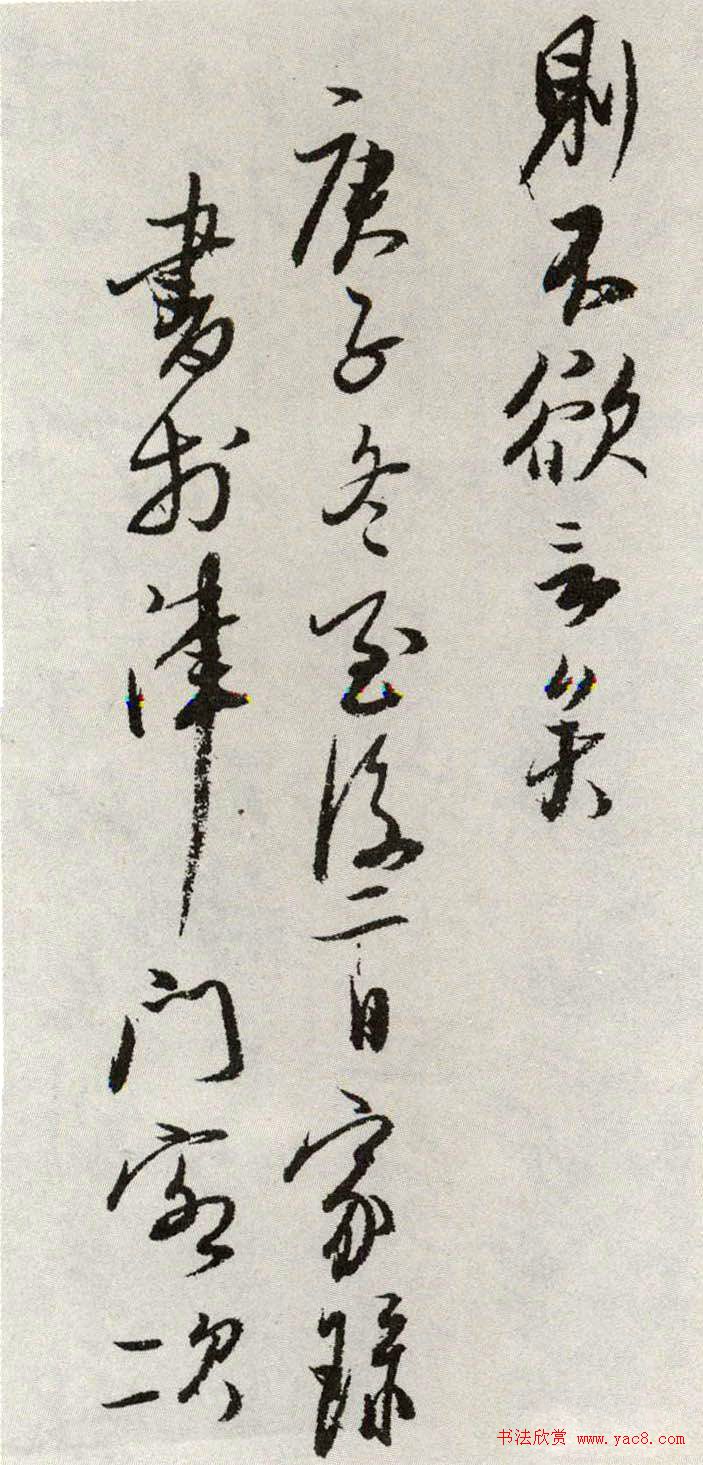 則不欲言矣
庚子冬至後二日家琭
書於津門客次
书法欣赏 www.yac8.com